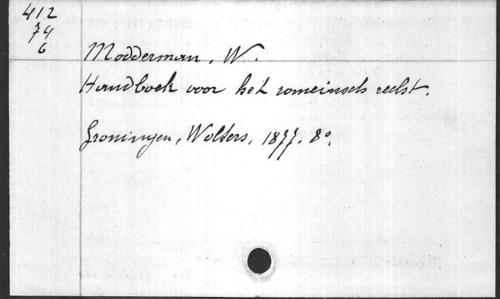 412
74
6
Modderman, W.
Handboek voor het romeinsch recht.
Groningen, Wolters, 1877. 8°.